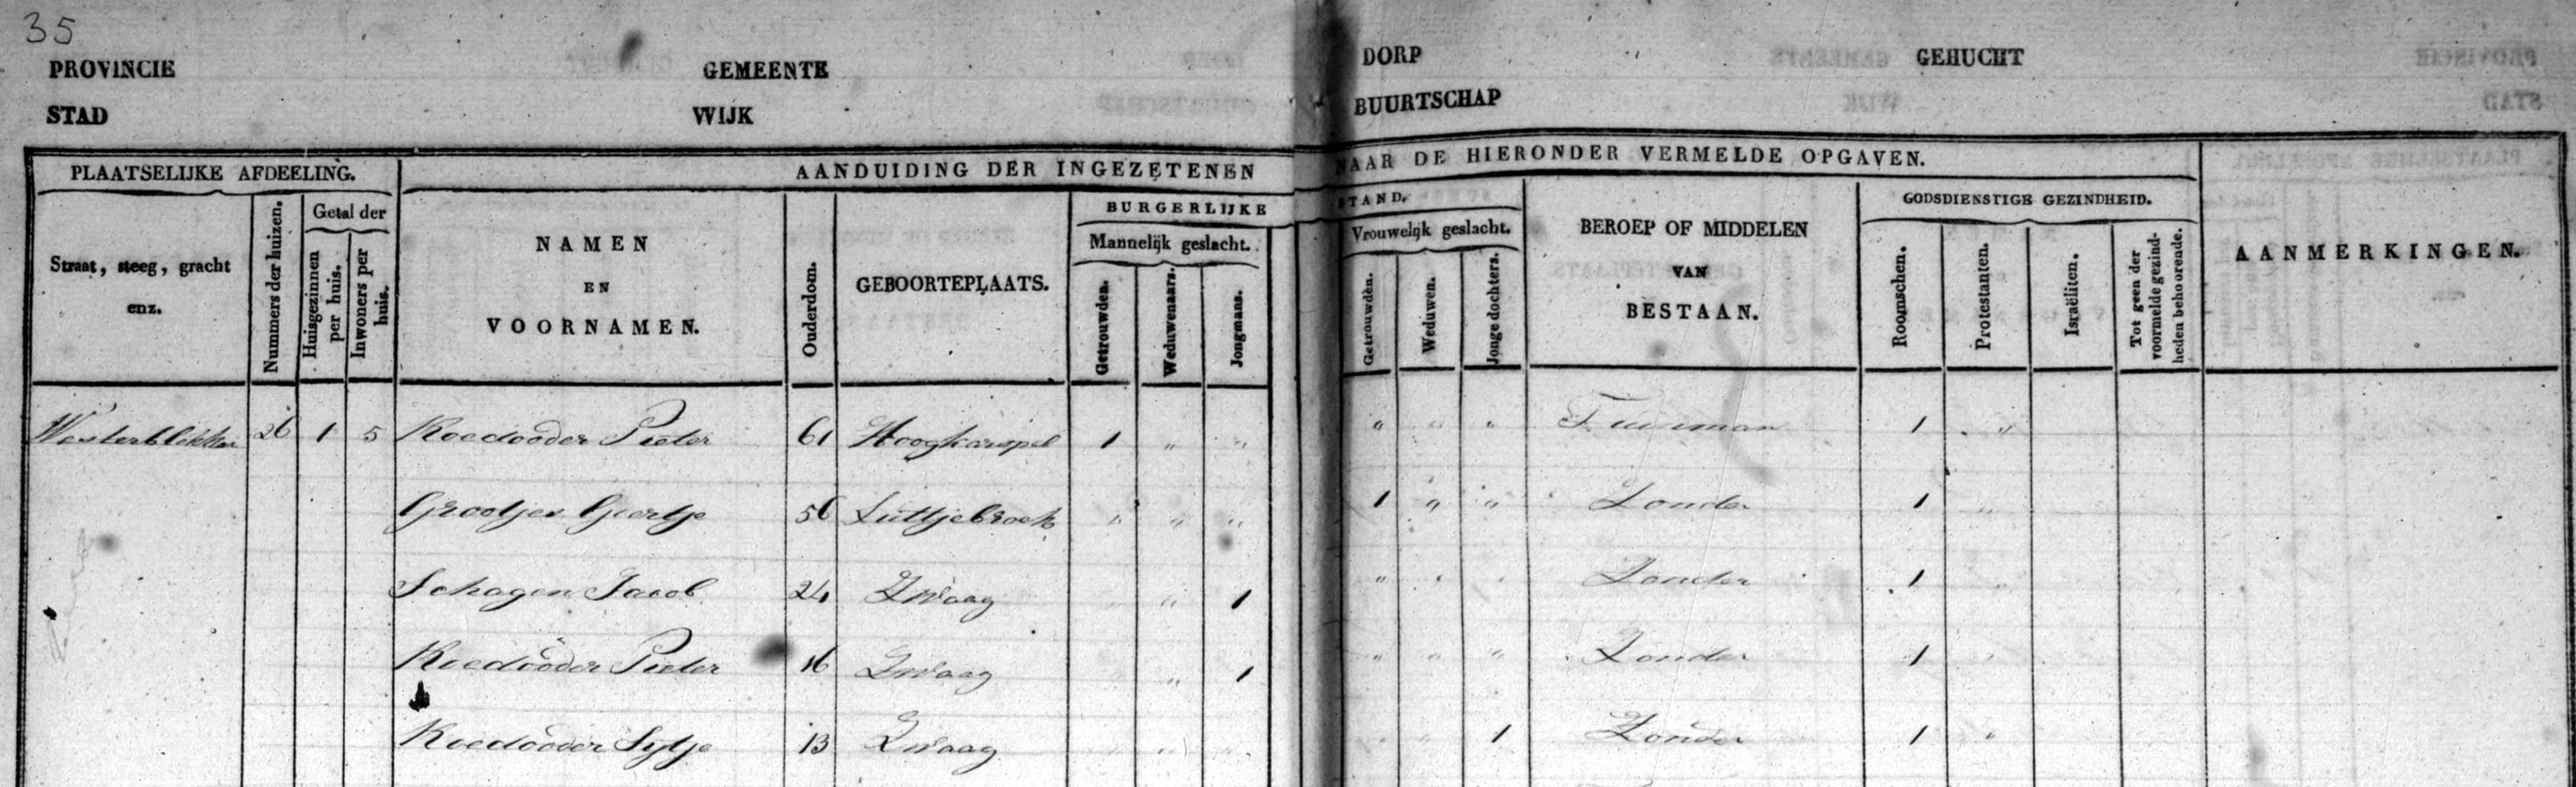 35
PROVINCIE GEMEENTE DORP GEHUCHT
STAD WIJK BUURTSCHAP
PLAATSELIJKE AFDEELING. AANDUIDING DER INGEZETENEN NAAR DE HIERONDER VERMELDE OPGAVEN.
Straat, steeg, gracht enz.
Nummers der huizen.
Getal der
Huisgezinnen per huis.
Inwoners per huis.
NAMEN EN VOORNAMEN.
Ouderdom.
GEBOORTEPLAATS.
BURGERLIJKE STAND.
Mannelijk geslacht.
Getrouwden.
Weduwenaars.
Jongmans.
Vrouwelijk geslacht.
Getrouwden.
Weduwen.
Jonge dochters.
BEROEP OF MIDDELEN VAN BESTAAN.
GODSDIENSTIGE GEZINDHEID.
Roomschen.
Protestanten.
Israëliten.
Tot geen der voormelde gezindheden behoorende.
AANMERKINGEN.
Westerblokker 26 1 5 Koedooder Pieter 61 Hoogkarspel 1 " " " " " Tuinman 1 "
Grootjes Geertje 56 Luttjebroek " " " 1 " " Zonder 1 "
Schagen Jacob 24 Zwaag " " 1 " " " Zonder 1 "
Koedooder Pieter 16 Zwaag " " 1 " " " Zonder 1 "
Koedooder Sijtje 13 Zwaag " " " " " 1 Zonder 1 "